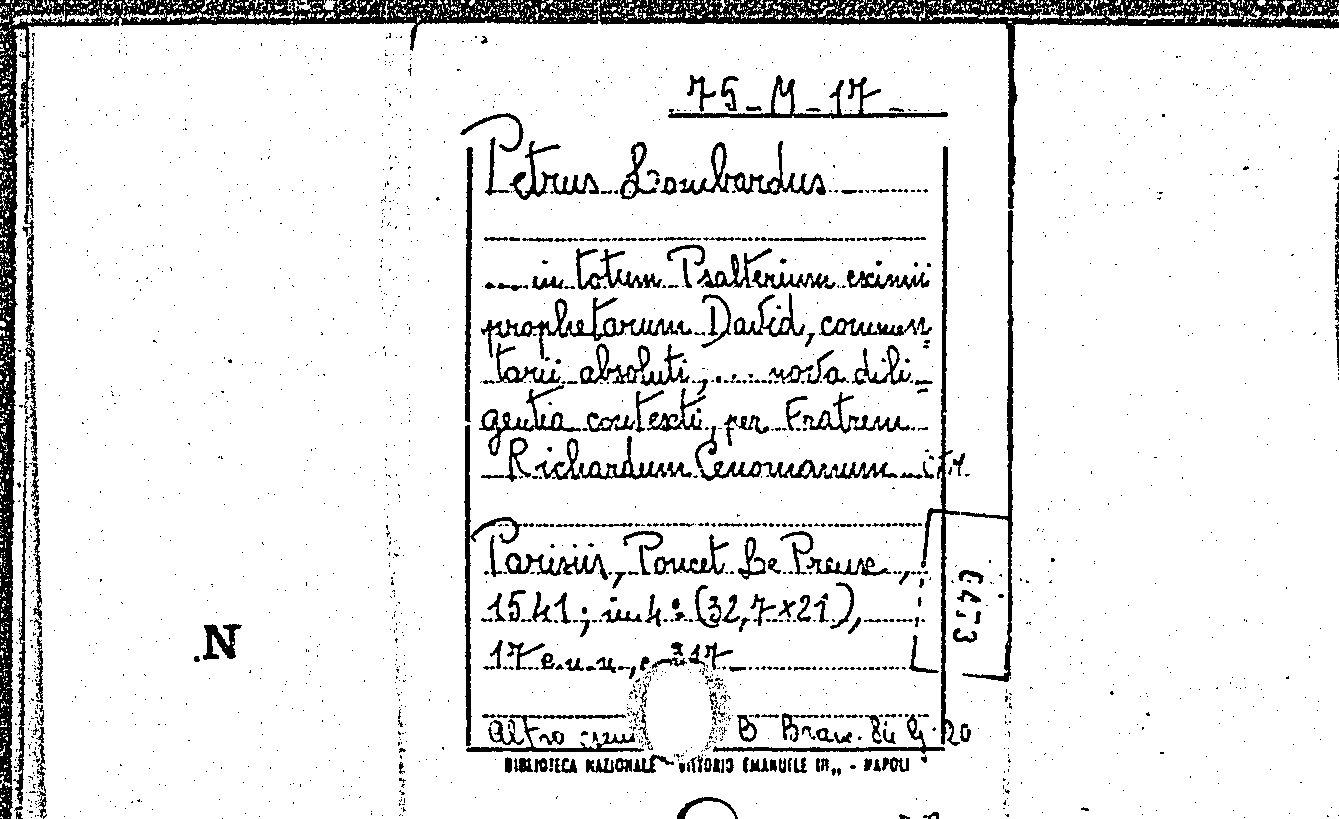 75-M-17
Petrus Lombardus
... in totum Psalterium eximii
prophetarum David, commen
tarii absoluti, ... nova dili-
gentia contexti, per Fratrem
Richardum Cenomanum
Parisiis, Poncet Le Preux,
1541; in 4º (32,7×21),
17 c.n.n., c. 317
Altro B Branc. 84 G 20
BIBLIOTECA NAZIONALE VITTORIO EMANUELE III„ - NAPOLI
.N
6473